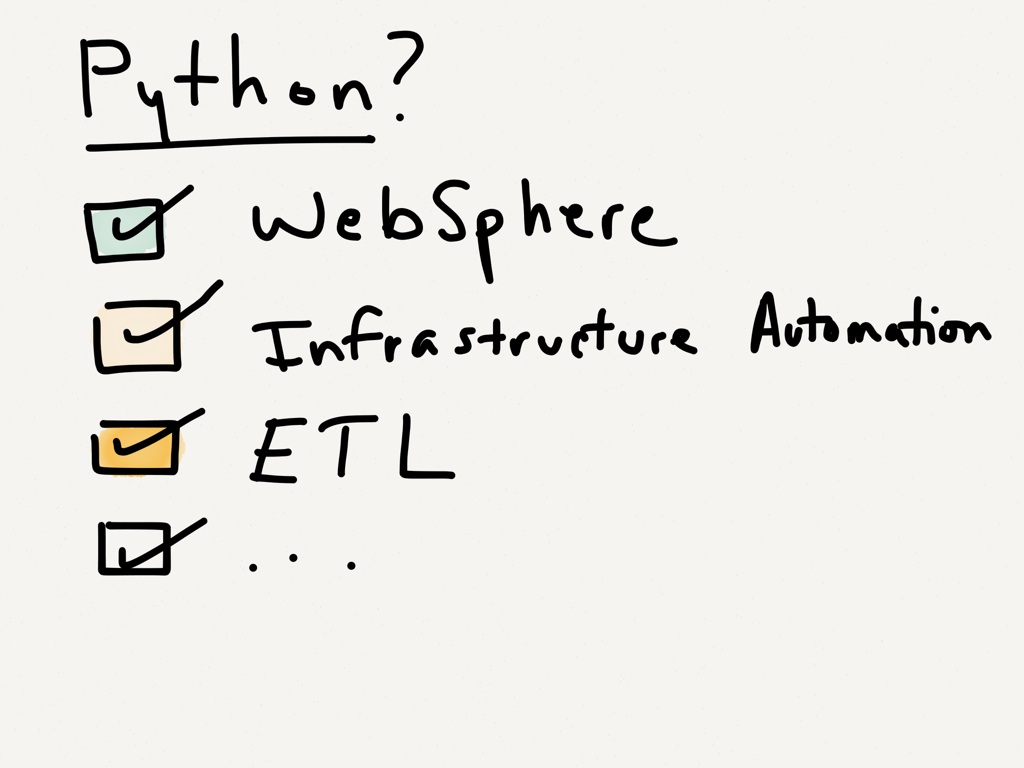 Python?
WebSphere
Infrastructure Automation
ETL
...